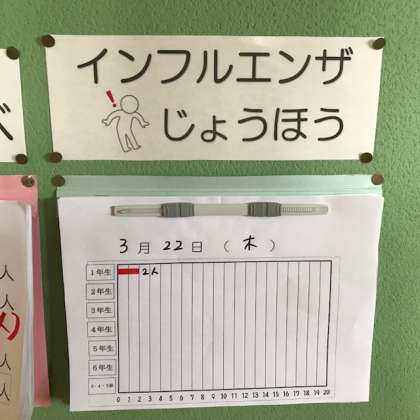 インフルエンザ
じょうほう
べ
3月22日（木）
1年生 2人
2年生
3年生
4年生
5年生
6年生
0 1 2 3 4 5 6 7 8 9 10 11 12 13 14 15 16 17 18 19 20
人
人
人
人